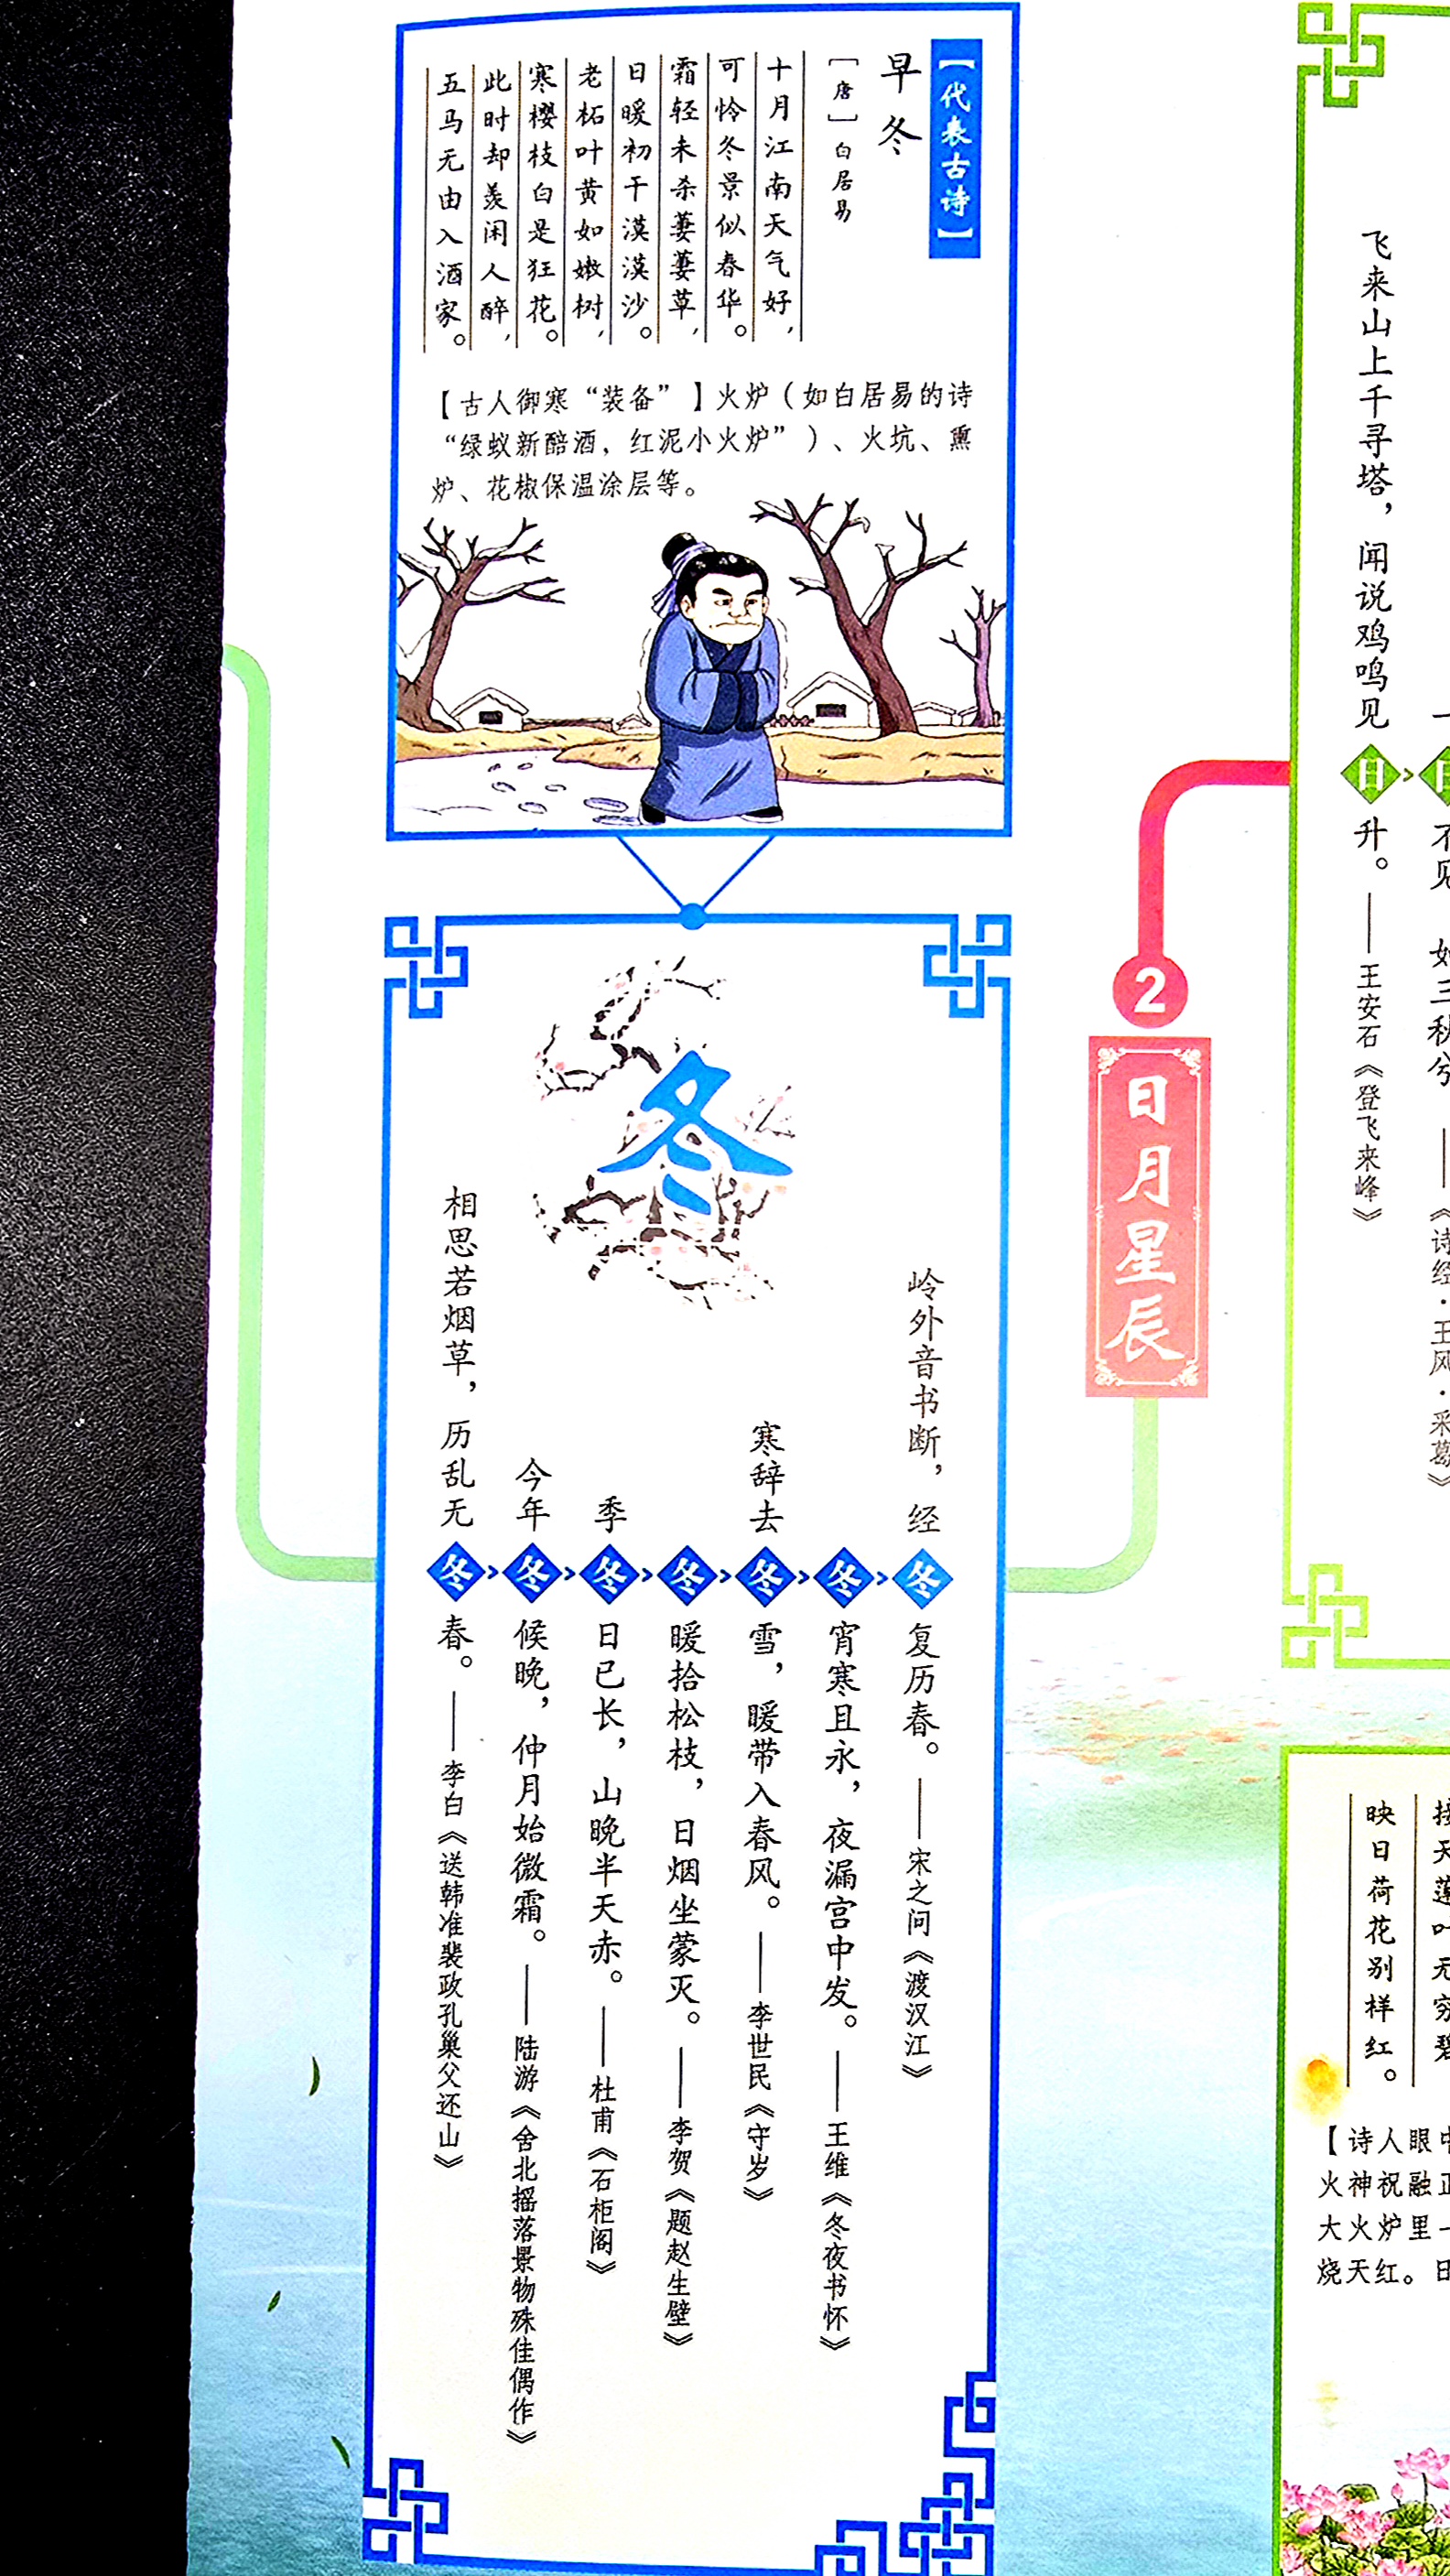 【代表古诗】
早冬
［唐］白居易
十月江南天气好，
可怜冬景似春华。
霜轻未杀萋萋草，
日暖初干漠漠沙。
老柘叶黄如嫩树，
寒樱枝白是狂花。
此时却羡闲人醉，
五马无由入酒家。
【古人御寒“装备”】火炉（如白居易的诗
“绿蚁新醅酒，红泥小火炉”）、火坑、熏
炉、花椒保温涂层等。
冬
岭外音书断，经冬复历春。——宋之问《渡汉江》
冬宵寒且永，夜漏宫中发。——王维《冬夜书怀》
寒辞去冬雪，暖带入春风。——李世民《守岁》
冬暖拾松枝，日烟坐蒙灭。——李贺《题赵生壁》
季冬日已长，山晚半天赤。——杜甫《石柜阁》
今年冬候晚，仲月始微霜。——陆游《舍北摇落景物殊佳偶作》
相思若烟草，历乱无冬春。——李白《送韩准裴政孔巢父还山》
2
日月星辰
一日不见 如三秋兮 ——《诗经·王风·采葛》
飞来山上千寻塔，闻说鸡鸣见日升。——王安石《登飞来峰》
接天莲叶无穷碧
映日荷花别样红。
【诗人眼中
火神祝融正
大火炉里一
烧天红。日